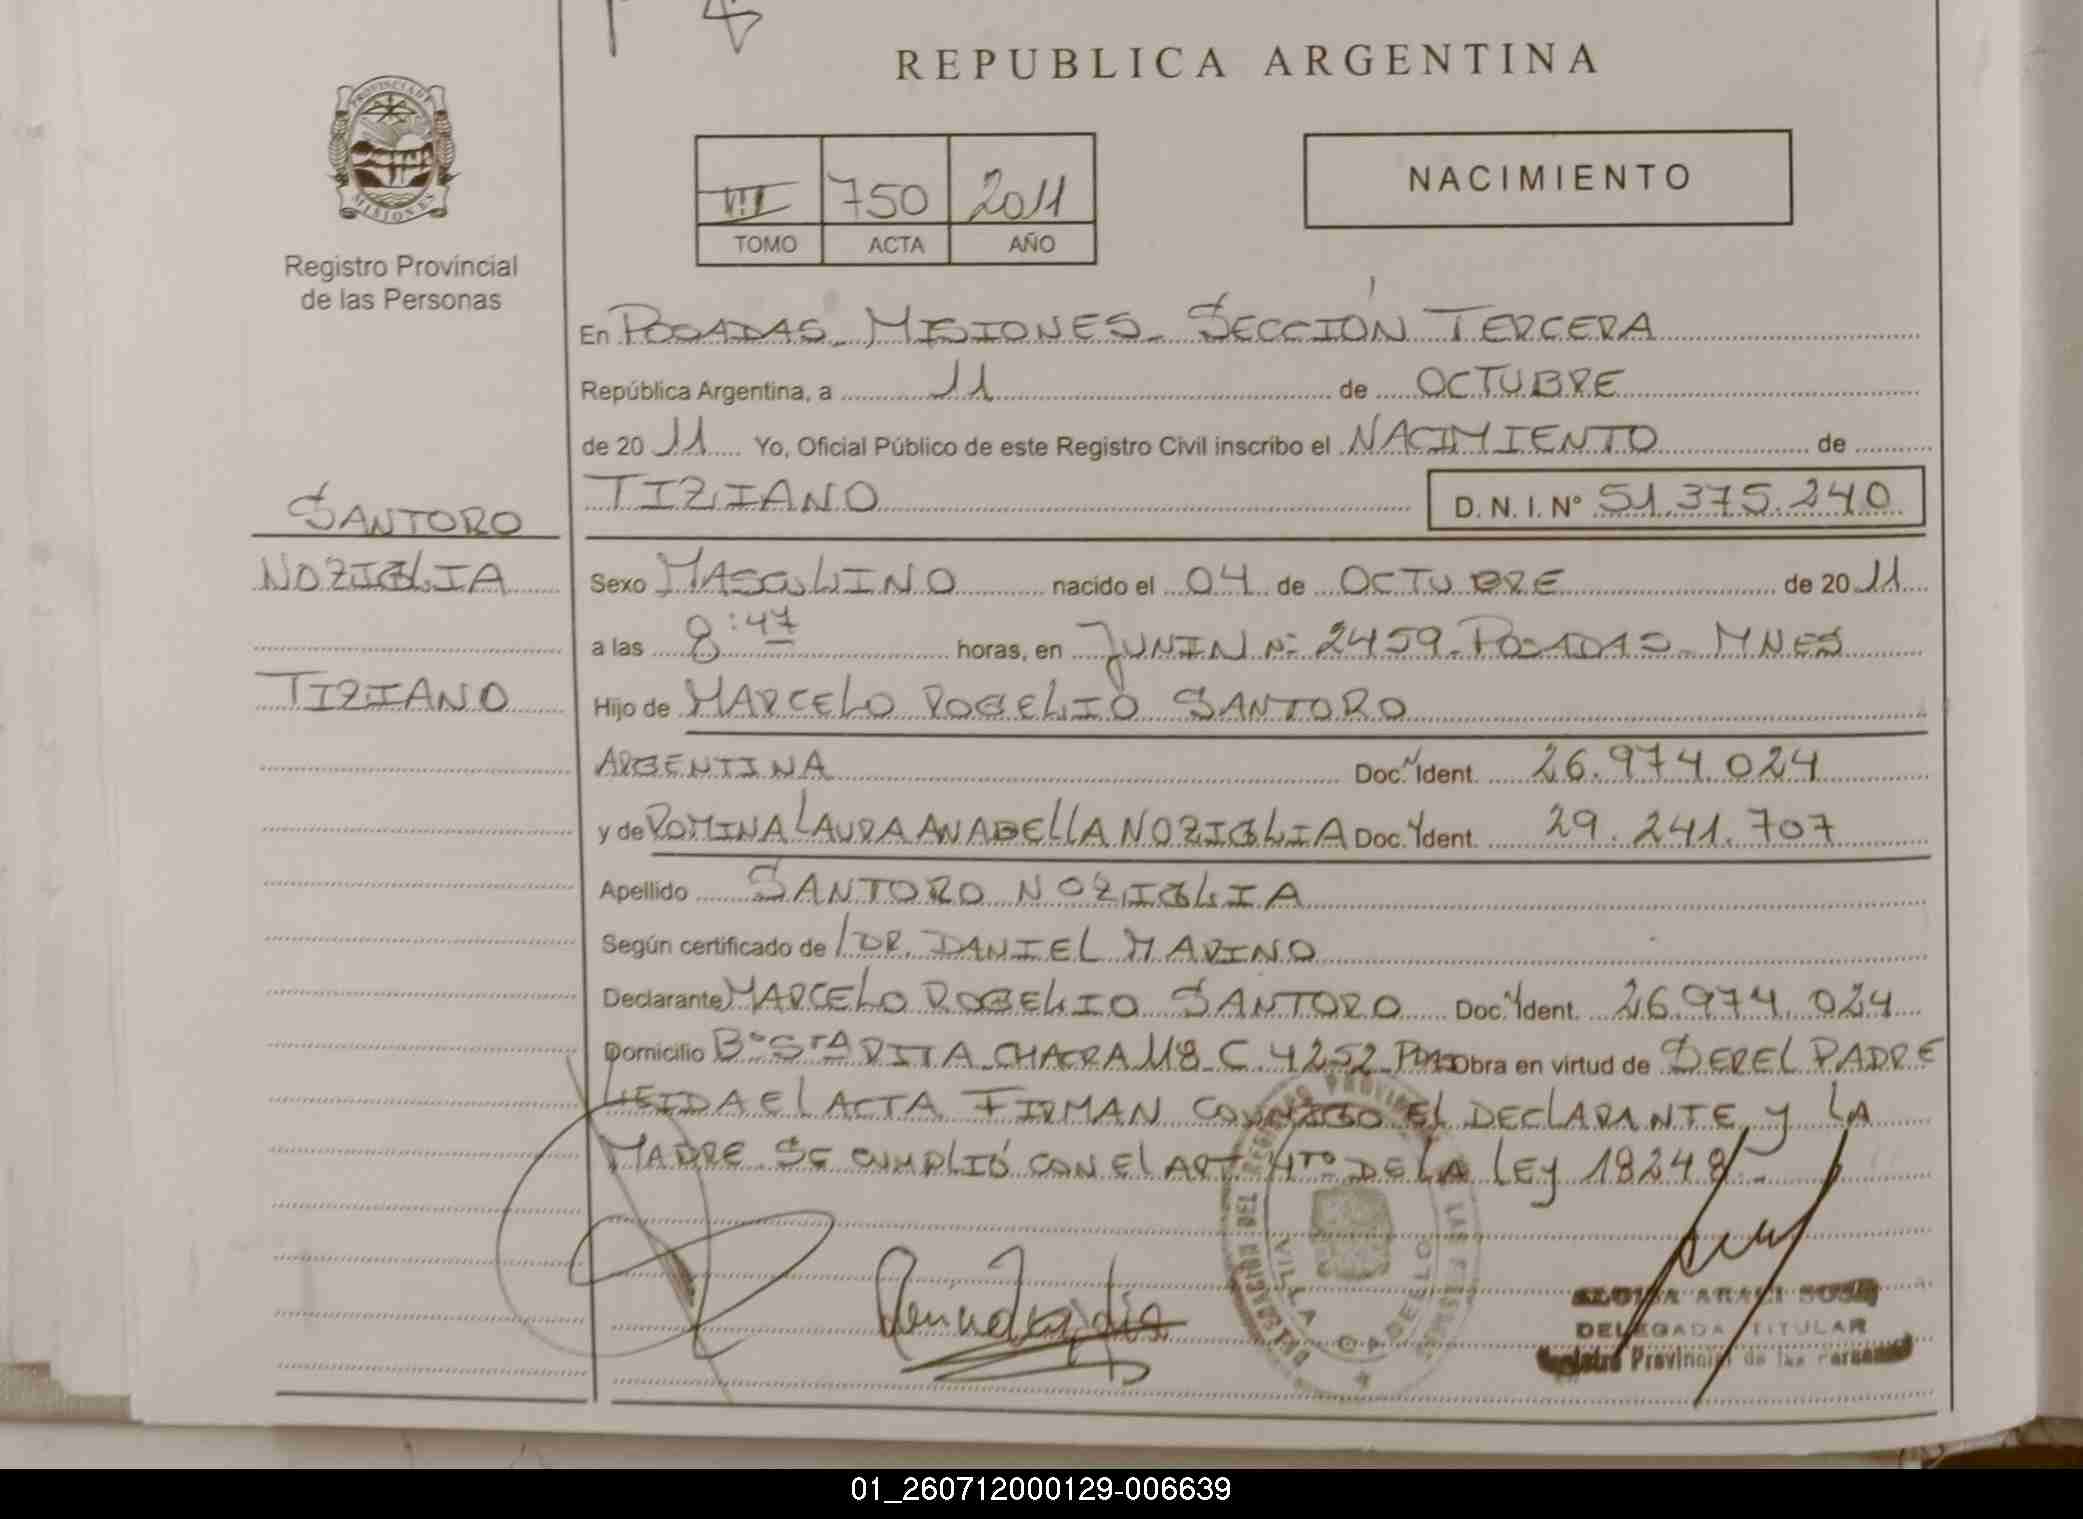 REPUBLICA ARGENTINA
PROVINCIA DE
MISIONES
Registro Provincial
de las Personas
VII 750 2011
TOMO ACTA AÑO
NACIMIENTO
En POSADAS - MISIONES - SECCIÓN TERCERA
República Argentina, a 11 de OCTUBRE
de 2011 Yo, Oficial Público de este Registro Civil inscribo el NACIMIENTO de
TIZIANO D. N. I. Nº 51.375.240
SANTORO
NOZIGLIA
TIZIANO
Sexo MASCULINO nacido el 04 de OCTUBRE de 2011
a las 8:47 horas, en JUNIN Nº 2459 - POSADAS - MNES
Hijo de MARCELO ROGELIO SANTORO
ARGENTINA Doc. Ident. 26.974.024
y de ROMINA LAURA ANABELLA NOZIGLIA Doc. Ident. 29.241.707
Apellido SANTORO NOZIGLIA
Según certificado de DR. DANIEL MARINO
Declarante MARCELO ROGELIO SANTORO Doc. Ident. 26.974.024
Domicilio Bº STA RITA - CHACRA 118 - C. 4252 - Obra en virtud de SER EL PADRE
LEIDA EL ACTA FIRMAN CONMIGO EL DECLARANTE y LA
MADRE SE CUMPLIÓ CON EL ART 4TO DE LA LEY 18248 -
VILLA CABELLO
ARACI SOSA
DELEGADA TITULAR
Registro Provincial de las Personas
01_260712000129-006639